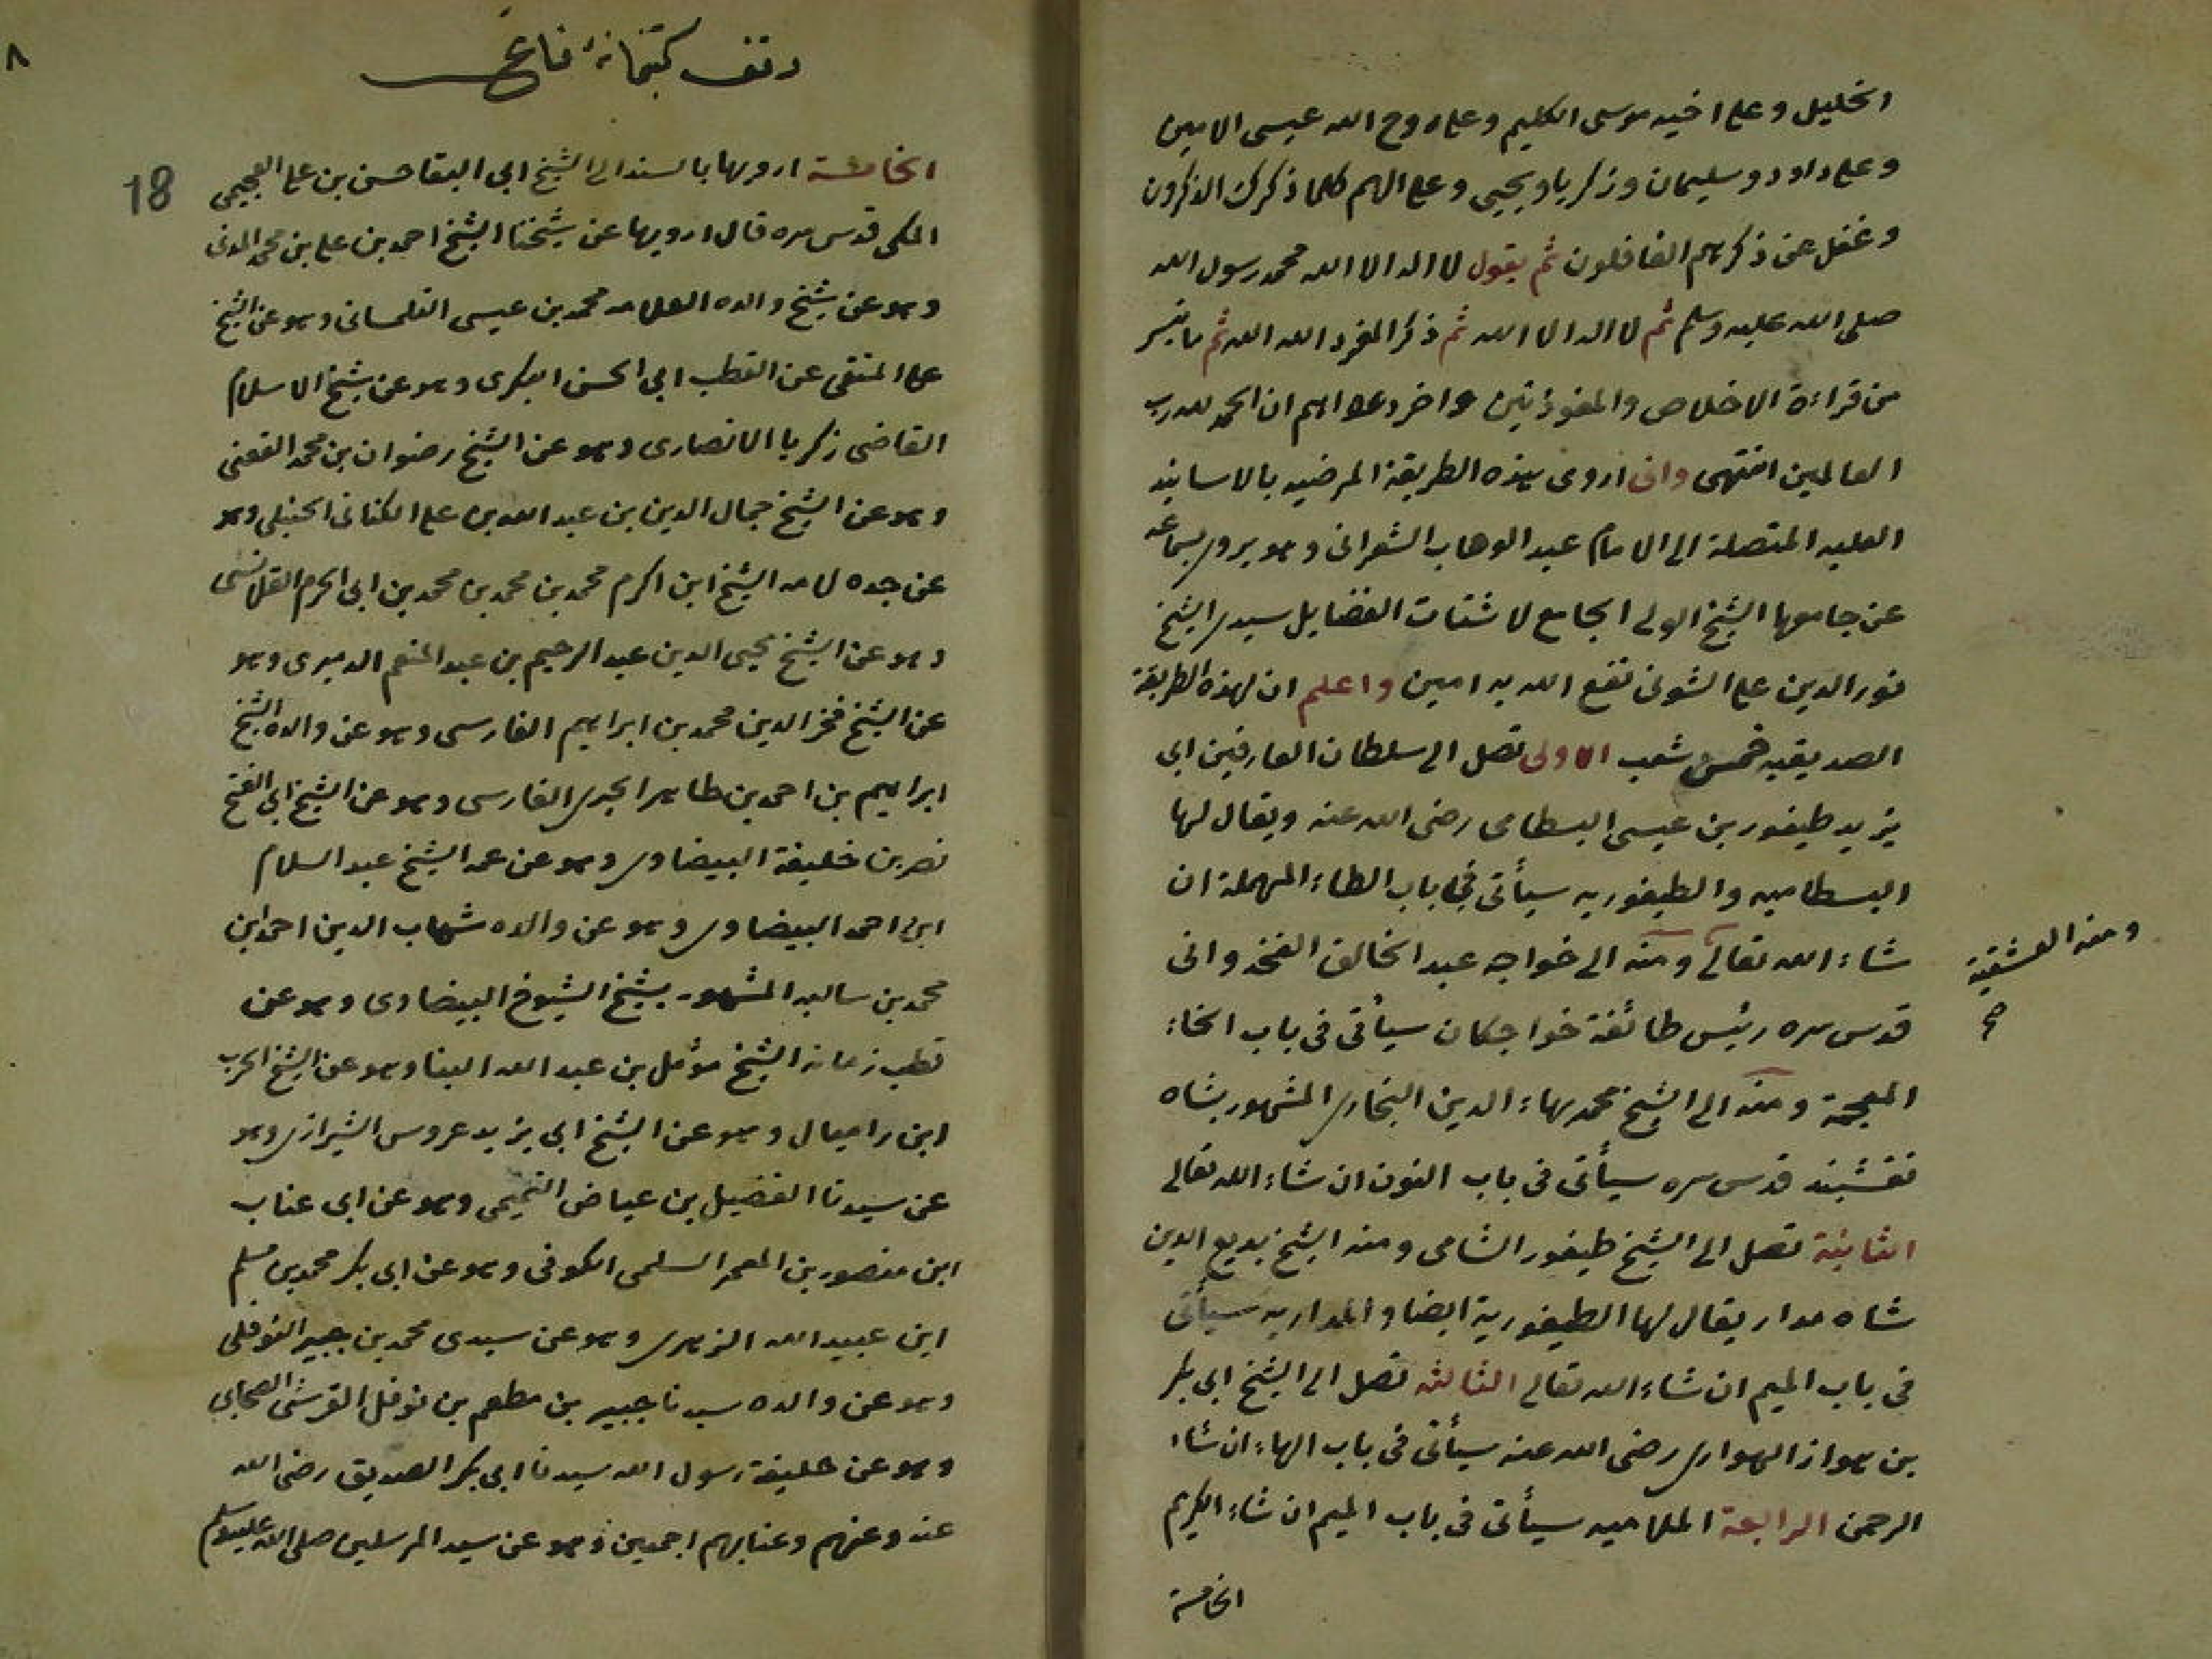 الخليل وعلى اخيه موسى الكليم وعلى روح الله عيسى الامين
وعلى داود وسليمان وزكريا ويحيى وعلى الهم كلما ذكرك الذكرون
وغفل عن ذكرهم الغافلون ثم يقول لا اله الا الله محمد رسول الله
صلى الله عليه وسلم ثم لا اله الا الله ثم ذكر المفرد الله الله ثم ما تيسر
من قراءة الاخلاص والمعوذتين واخر دعواهم ان الحمد لله رب
العالمين انتهى وانى اروى هذه الطريقة المرضيه بالاسانيد
العليه المتصلة الى الامام عبد الوهاب الشعرانى وهو يروى بسماعه
عن جامعها الشيخ الولى الجامع لاشتات الفضايل سيدى الشيخ
نور الدين على الشونى نفع الله به امين واعلم ان لهذه الطريقة
الصديقيه خمس شعب الاولى تصل الى سلطان العارفين ابى
يزيد طيفور بن عيسى البسطامى رضى الله عنه ويقال لها
البسطاميه والطيفوريه سيأتى فى باب الطاء المهملة ان
شاء الله تعالى ومنه الى خواجه عبد الخالق الغجدوانى
ومنه العشقية
صح
قدس سره رئيس طائفة خواجكان سيأتى فى باب الخاء
المعجمة ومنه الى الشيخ محمد بهاء الدين البخارى المشهور بشاه
نقشبند قدس سره سيأتى فى باب النون ان شاء الله تعالى
الثانية تصل الى الشيخ طيفور الشامى ومنه الشيخ بديع الدين
شاه مدار يقال لها الطيفورية ايضا والمداريه سيأتى
فى باب الميم ان شاء الله تعالى الثالثه تصل الى الشيخ ابى بكر
بن هواز الهوارى رضى الله عنه سيأتى فى باب الهاء ان شاء
الرحمن الرابعة الملاميه سيأتى فى باب الميم ان شاء الكريم
الخامسة
٨
وقف كتبخانه
18
الخامسة ارويها بالسند الى الشيخ ابى البقا حسن بن على العجيمى
المكى قدس سره قال ارويها عن شيخنا الشيخ احمد بن على بن محمد المدنى
وهو عن شيخ والده العلامه محمد بن عيسى التلمسانى وهو عن الشيخ
على المتقى عن القطب ابى الحسن البكرى وهو عن شيخ الاسلام
القاضى زكريا الانصارى وهو عن الشيخ رضوان بن محمد العقبى
وهو عن الشيخ جمال الدين بن عبد الله بن على الكنانى الحنبلى وهو
عن جده لامه الشيخ ابن اكرم محمد بن محمد بن محمد بن ابى الحرم القلانسى
وهو عن الشيخ يحيى الدين عبد الرحيم بن عبد المنعم الدميرى وهو
عن الشيخ فخر الدين محمد بن ابراهيم الفارسى وهو عن والده الشيخ
ابراهيم بن احمد بن طاهر الفارسى وهو عن الشيخ ابى الفتح
نصر بن خليفة البيضاوى وهو عن عمه الشيخ عبد السلام
ابن احمد البيضاوى وهو عن والده شهاب الدين احمد بن
محمد بن سالبه المشهور بشيخ الشيوخ البيضاوى وهو عن
قطب زمانه الشيخ مؤمل بن عبد الله البنا وهو عن الشيخ
ابن راميال وهو عن الشيخ ابى يزيد عروس الشيرازى وهو
عن سيدنا الفضيل بن عياض التميمى وهو عن ابى عتاب
ابن منصور بن المعمر السلمى الكوفى وهو عن ابى بكر محمد بن مسلم
ابن عبيد الله الزهرى وهو عن سيدى محمد بن جبير النوفلى
وهو عن والده سيدنا جبير بن مطعم بن نوفل القرشى الصحابى
وهو عن خليفة رسول الله سيدنا ابى بكر الصديق رضى الله
عنه وعنهم وعنا بهم اجمعين وهو عن سيد المرسلين صلى الله عليه وسلم